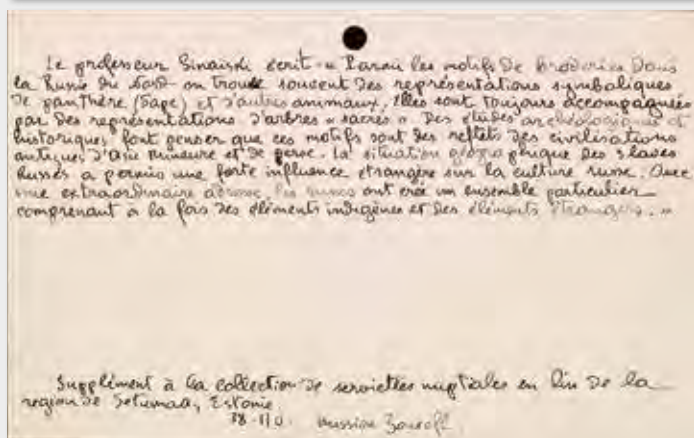 Le professeur Sinaiski écrit - « Parmi les motifs de broderies dans
la Russie du Nord on trouve souvent des représentations symboliques
de panthère (Sape) et d'autres animaux. Elles sont toujours accompagnées
par des représentations d'arbres « sacrés » Des études archéologiques et
historiques font penser que ces motifs sont des reflets des civilisations
antiques d'Asie Mineure et de Perse. La situation géographique des Slaves
Russes a permis une forte influence étrangère sur la culture russe. Avec
une extraordinaire adresse, les russes ont créé un ensemble particulier
comprenant à la fois des éléments indigènes et des éléments étrangers. »
Supplément à la collection de serviettes nuptiales en lin de la
région de Setumaa, Estonie.
38.110. mission Zouroff.